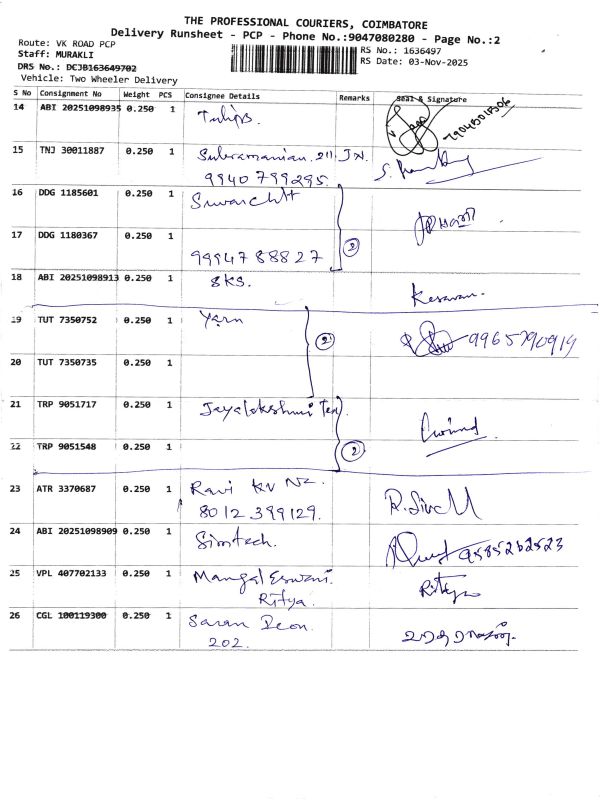 THE PROFESSIONAL COURIERS, COIMBATORE
Delivery Runsheet - PCP - Phone No.:9047080280 - Page No.:2
Route: VK ROAD PCP
Staff: MURAKLI
DRS No.: DCJB163649702
Vehicle: Two Wheeler Delivery
RS No.: 1636497
RS Date: 03-Nov-2025
S No Consignment No Weight PCS Consignee Details Remarks Seal & Signature
14 ABI 20251098935 0.250 1 Tulips.
15 TNJ 30011887 0.250 1 Subramanian. 211. J.N.
9940799295.
16 DDG 1185601 0.250 1
17 DDG 1180367 0.250 1 2
9994788827
18 ABI 20251098913 0.250 1 SKS. Kesavan.
19 TUT 7350752 0.250 1 Yarn 2 9965790919
20 TUT 7350735 0.250 1
21 TRP 9051717 0.250 1 Jayalakshmi Tex
22 TRP 9051548 0.250 1 2
23 ATR 3370687 0.250 1 Ravi KV Nr. R.Siva M
8012399129.
24 ABI 20251098909 0.250 1 Simtech. 9585262523
25 VPL 407702133 0.250 1 Mangal Eswari. Ritya
Ritya.
26 CGL 100119300 0.250 1 Saran Deon.
202.